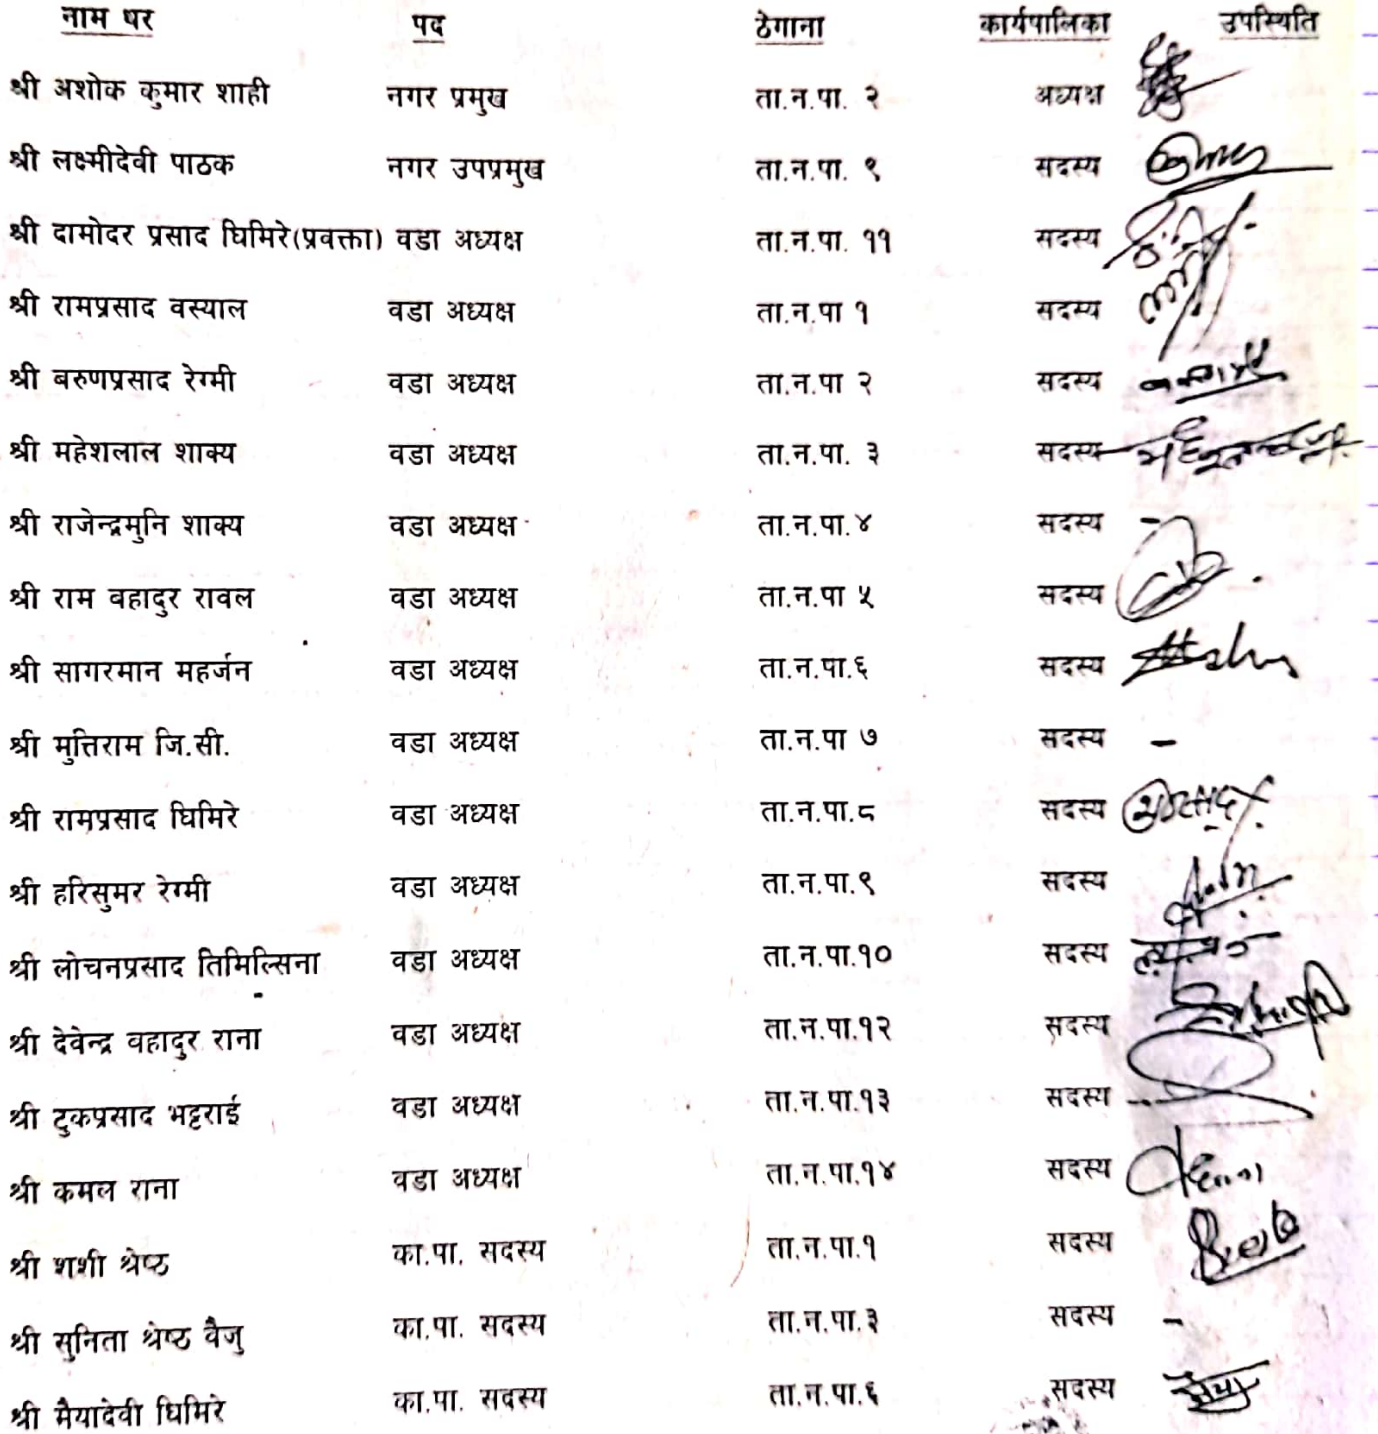 नाम थर पद ठेगाना कार्यपालिका उपस्थिति
श्री अशोक कुमार शाही नगर प्रमुख ता.न.पा. २ अध्यक्ष
श्री लक्ष्मीदेवी पाठक नगर उपप्रमुख ता.न.पा. ९ सदस्य
श्री दामोदर प्रसाद घिमिरे(प्रवक्ता) वडा अध्यक्ष ता.न.पा. ११ सदस्य
श्री रामप्रसाद वस्याल वडा अध्यक्ष ता.न.पा १ सदस्य
श्री बरुणप्रसाद रेग्मी वडा अध्यक्ष ता.न.पा २ सदस्य
श्री महेशलाल शाक्य वडा अध्यक्ष ता.न.पा. ३ सदस्य
श्री राजेन्द्रमुनि शाक्य वडा अध्यक्ष ता.न.पा.४ सदस्य -
श्री राम वहादुर रावल वडा अध्यक्ष ता.न.पा ५ सदस्य
श्री सागरमान महर्जन वडा अध्यक्ष ता.न.पा.६ सदस्य
श्री मुत्तिराम जि.सी. वडा अध्यक्ष ता.न.पा ७ सदस्य -
श्री रामप्रसाद घिमिरे वडा अध्यक्ष ता.न.पा.८ सदस्य
श्री हरिसुमर रेग्मी वडा अध्यक्ष ता.न.पा.९ सदस्य
श्री लोचनप्रसाद तिमिल्सिना वडा अध्यक्ष ता.न.पा.१० सदस्य
श्री देवेन्द्र वहादुर राना वडा अध्यक्ष ता.न.पा.१२ सदस्य
श्री टुकप्रसाद भट्टराई वडा अध्यक्ष ता.न.पा.१३ सदस्य
श्री कमल राना वडा अध्यक्ष ता.न.पा.१४ सदस्य
श्री शशी श्रेष्ठ का.पा. सदस्य ता.न.पा.१ सदस्य
श्री सुनिता श्रेष्ठ वैजु का.पा. सदस्य ता.न.पा.३ सदस्य -
श्री मैयादेवी घिमिरे का.पा. सदस्य ता.न.पा.६ सदस्य